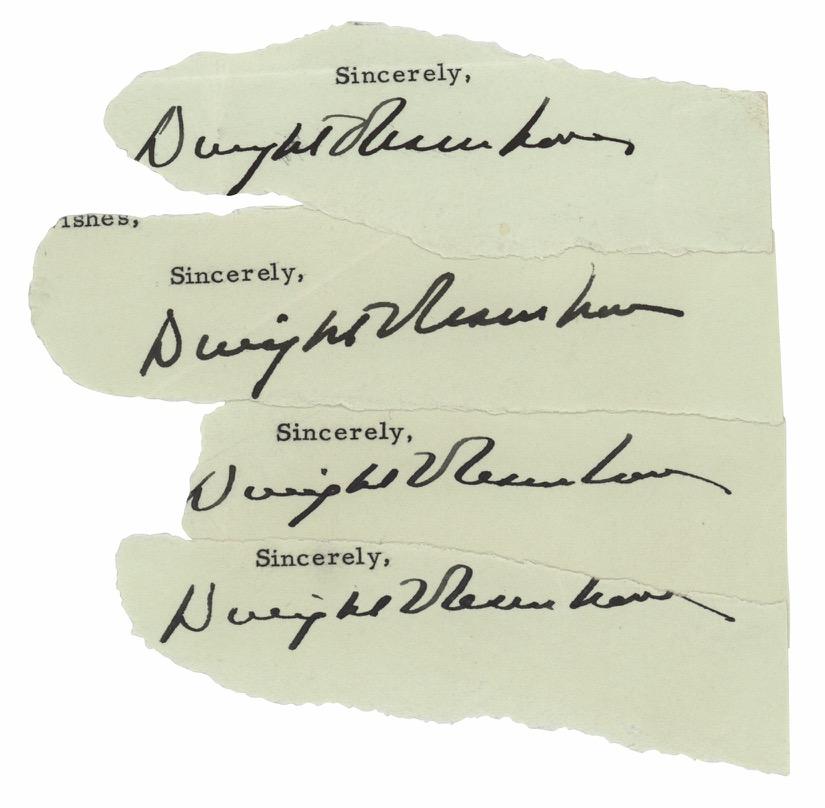 Sincerely,
Dwight D Eisenhower
ishes,
Sincerely,
Dwight D Eisenhower
Sincerely,
Dwight D Eisenhower
Sincerely,
Dwight D Eisenhower